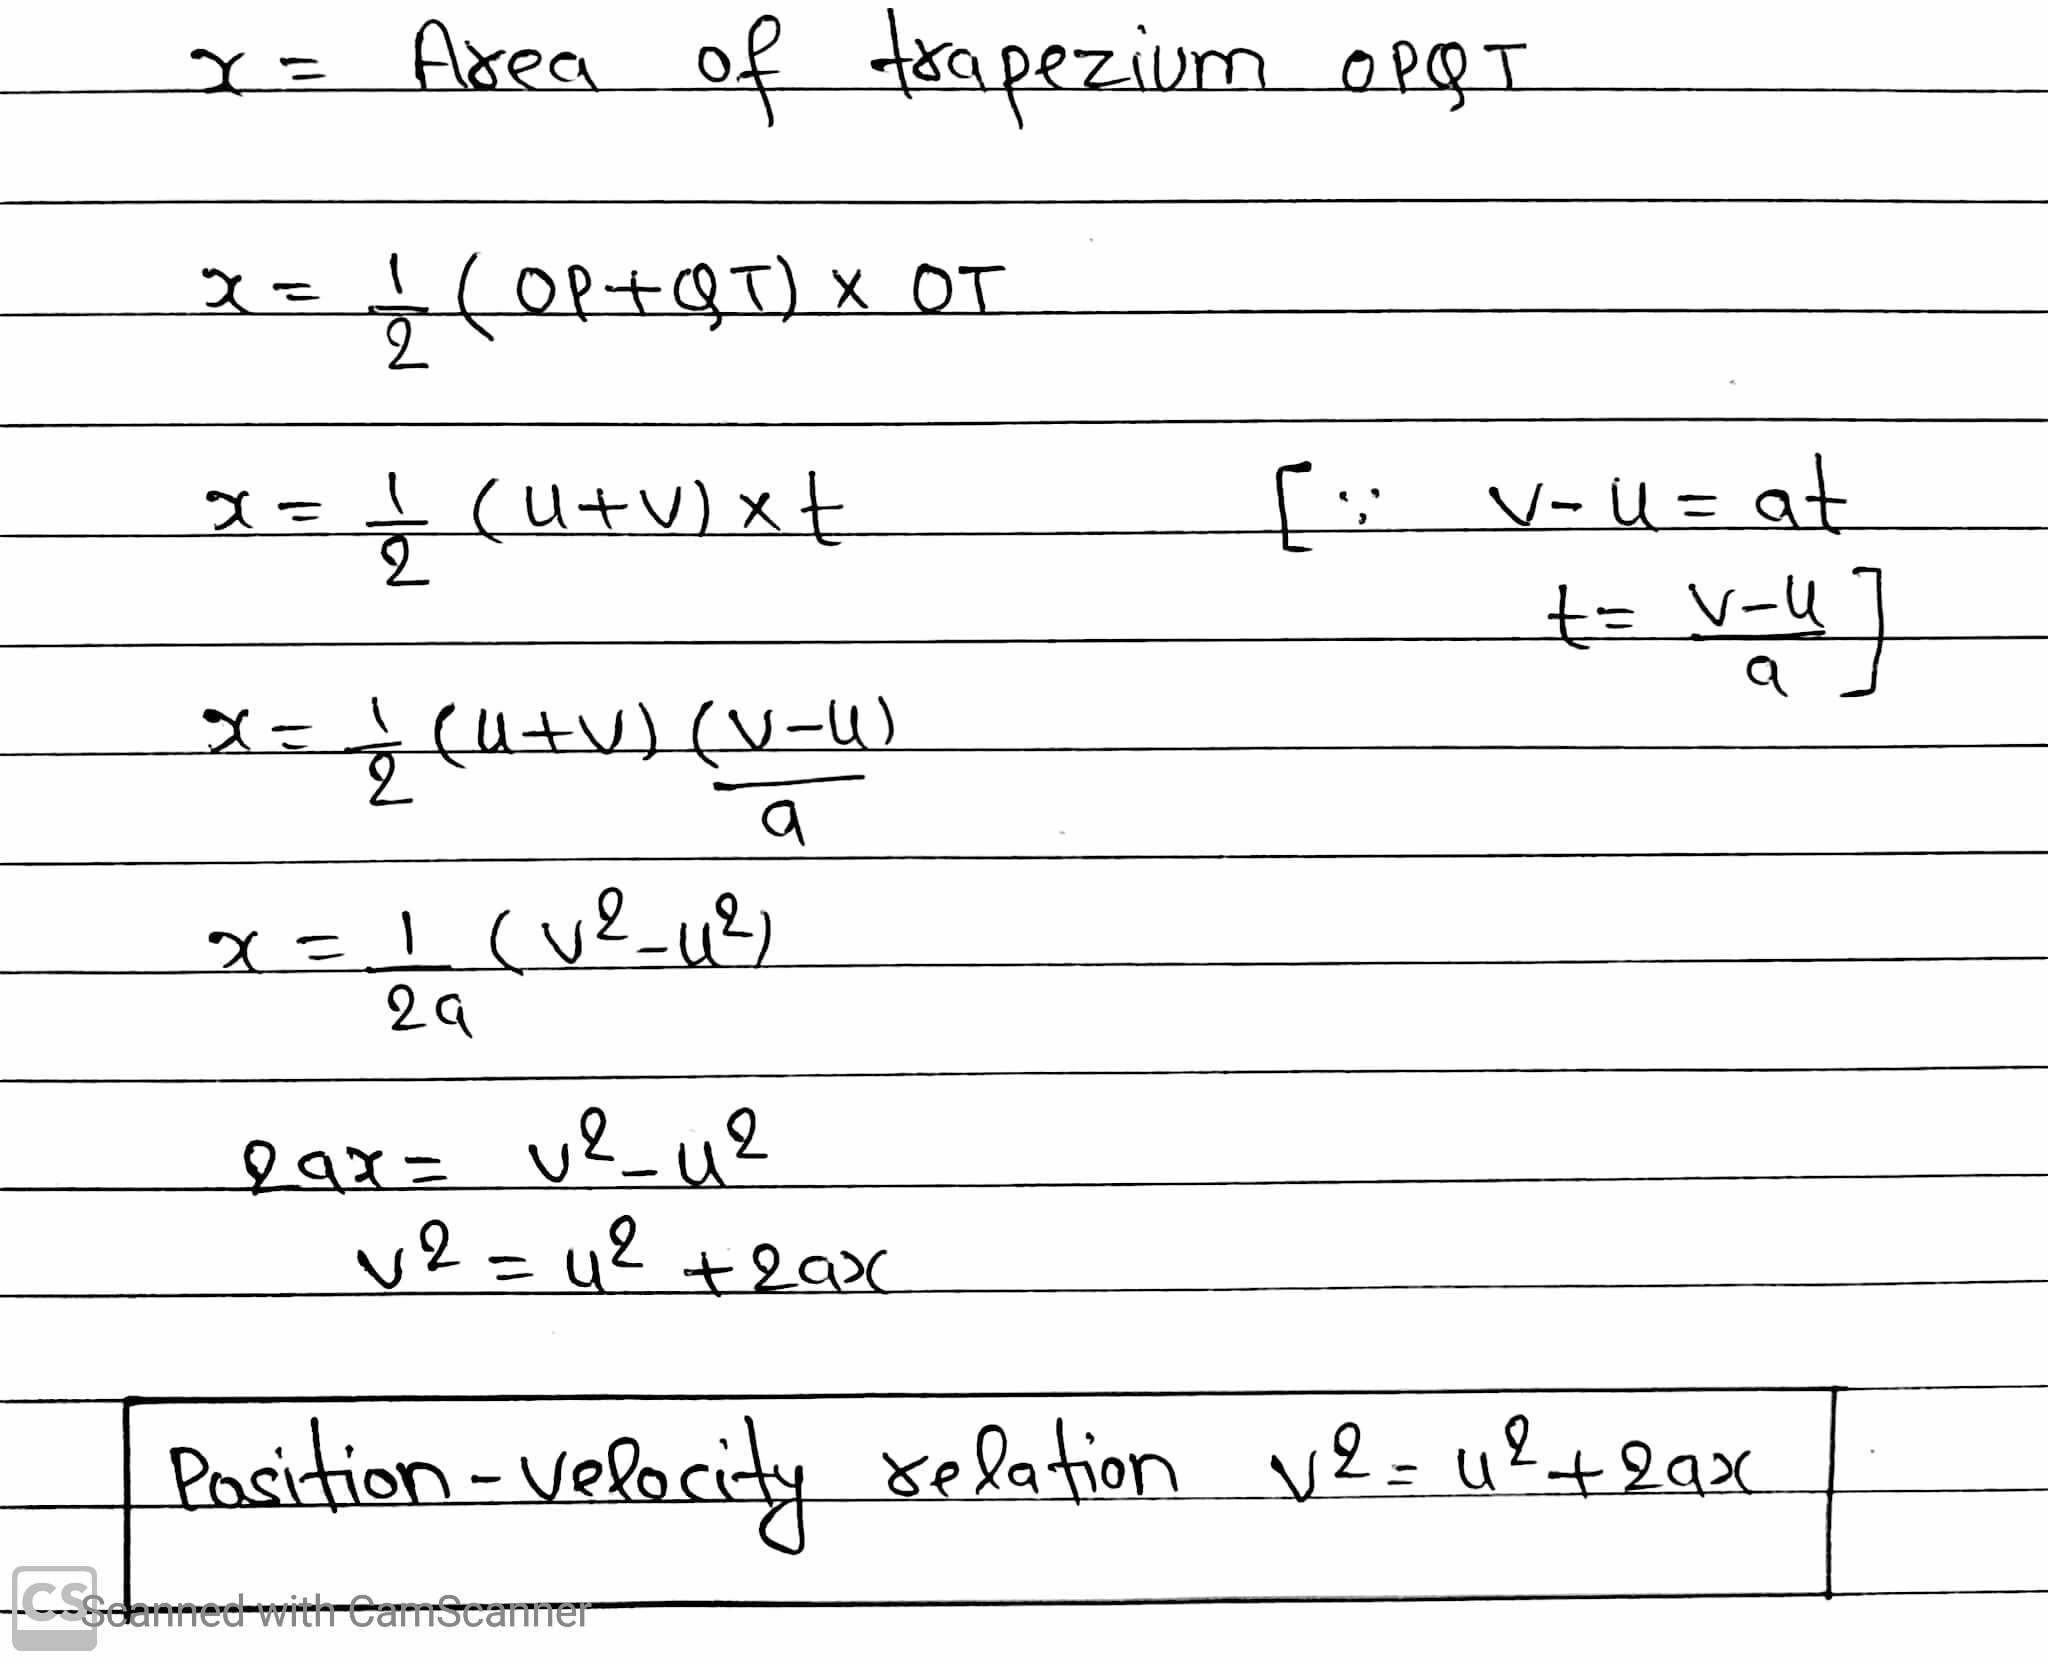 x = Area of trapezium OPQT
x = 1/2 (OP+QT) x OT
x = 1/2 (u+v) x t [∵ v-u = at
t = v-u/a ]
x = 1/2 (u+v) (v-u)/a
x = 1/2a (v²-u²)
2ax = v²-u²
v² = u² +2ax
Position-velocity relation v² = u²+2ax
CS Scanned with CamScanner